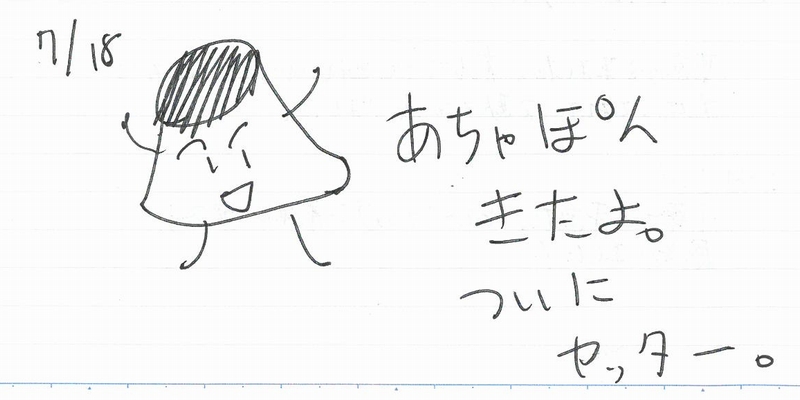 7/18
あちゃぽん
きたよ。
ついに
セッター。